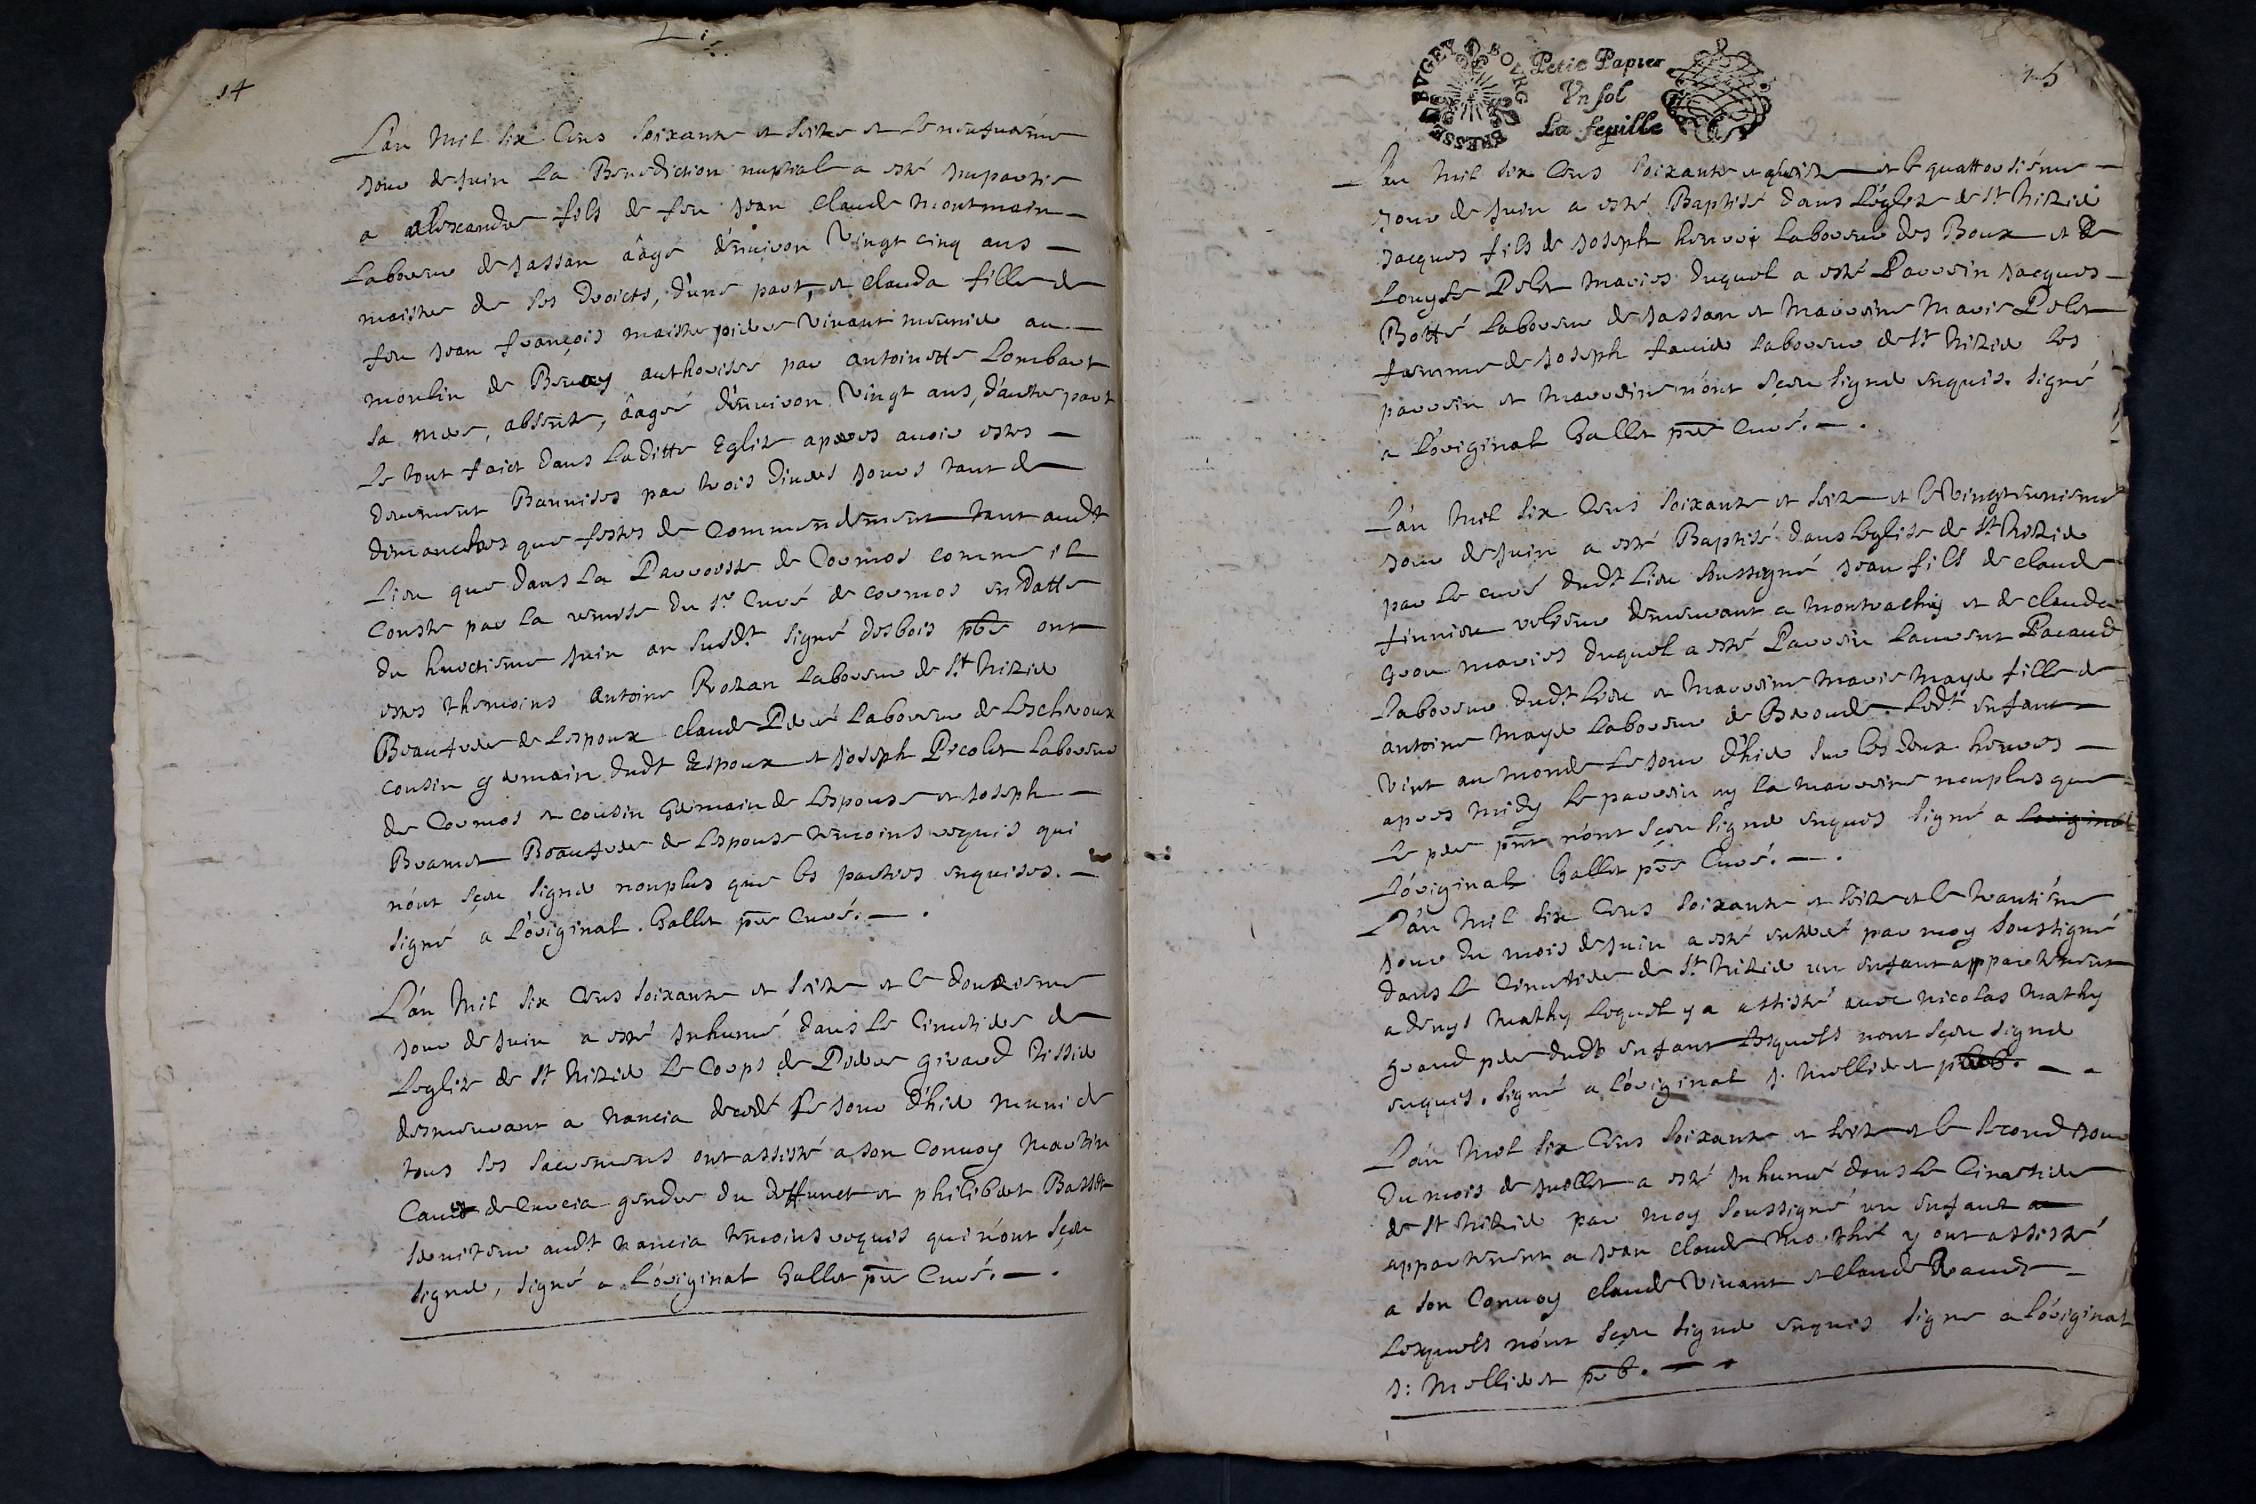 14
L'an Mil six Cens soixante et seize et le neufuiesme
Jour de Juin La Benediction nuptiale a esté Impartie
a allexandre fils de feu Jean Claude montmain
Laboureur de Jassan aâgé d'enuiron Vingt cinq ans
maistre de ses droicts, d'une part, et Clauda fille de
feu Jean françois maistre Viuant meunier au
moulin de authorisée par antoinette Lombart
sa mere, absente, aâgée d'enuiron Vingt ans, d'autre part
Le tout faict dans Laditte Eglize apres auoir estes
deuement Bannises par trois diuers Jours tant de
dimanches que festes de Commendement tant audt
Lieu que dans La Parroisse de Cormos comme il
Conste par La remise du sr Curé de cormos en datte
du huictiesme Juin an susdt signé desbois pbre ont
estes themoins Antoine Rozan Laboureur de St Nizier
Beaufrere de Lespoux Claude Laboureur de Lescheroux
cousin germain dudt Espoux et Joseph Pecolet Laboureur
de Cormos et cousin Germain de Lespouse et Joseph
Beaufrere de Lespouse temoins requis qui
n'ont sçeu signer nonplus que les parties enquises.
signé a L'original. Gallet pre Curé.
L'an Mil six Cens soixante et seize et le douziesme
Jour de Juin a esté Inhumé dans Le Cimetiere de
Leglize de St Nizier Le Corps de Pierre Giraud Tissier
desmeurant a Nancia decedé Le Jour d'hier muni de
tous ses sacremens ont assisté a son Conuoy Martin
de Curcia gendre du deffunct et philibert Basset
seruiteur audt Nancia temoins requis qui n'ont sçeu
signer, signé a L'original Gallet pre Curé.
BRESSE BVGEY BOVRG
Petit Papier
Vn sol
La feuille
15
L'an Mil six Cens soixante et seize et le quattorsiéme
Jour de Juin a esté Baptisé dans L'églize de St Nizier
Jacques fils de Joseph Laboureur des Boux et de
Louyse Pelet Maries duquel a esté Parrain Jacques
Botté Laboureur de Jassan et Marraine Marie Pelet
femme de Joseph Laboureur de St Nizier les
parrein et marreine n'ont sçeu signer enquis. signé
a L'original Gallet pre Curé.
L'an Mil six Cens soixante et seize et le Vingt uniesme
Jour de Juin a esté Baptisé dans Leglise de St Nizier
par Le curé dudt Lieu soussigné Jean fils de Claude
demeurant a montrachy et de Clauda
maries duquel a esté Parrein Laurent
Laboureur dudt Lieu et Marreine Marie Mayer fille de
antoine Mayer Laboureur de Ledt enfant
Vint au monde Le Jour d'hier sur les deux heures
apres midy Le parrein ny La marreine nonplus que
Le pere pnt n'ont sçeu signer enquis signé a Loriginal
L'original Gallet pre Curé.
L'an Mil six Cens soixante et seize et le trantiéme
Jour du mois de Juin a esté enterré par moy soussigné
dans Le Cimetiere de St Nizier un enfant appartenent
a denys Mathy Lequel y a assisté auec nicolas Mathy
grand pere dudt enfant Lesquels nont sçeu signer
enquis. signé a L'original J. Mollieret
L'an Mil six Cens soixante et seize et le second Jour
du mois de Juillet a esté Inhumé dans Le Cimetiere
de St Nizier par moy soussigné un enfant
appartenent a Jean Claude y ont assisté
a son Conuoy Claude Viuant et Claude
Lesquels n'ont sçeu signer enquis signe a L'original
J: Mollieret prb.